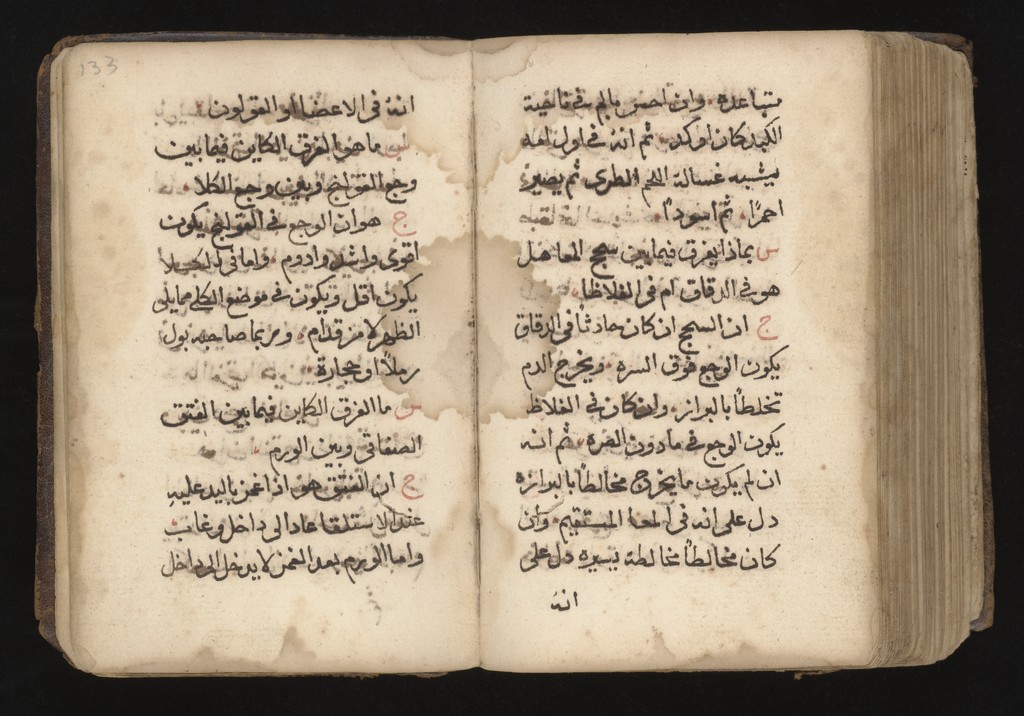 متباعده وان احس بالم في ناحية
الكبد كان اوكد ثم انه في اول امه
يشبه غسالة اللحم الطرى ثم يصير
احمرًا ثم اسودًا
س بماذا يفرق فيما بين سحج المعا هل
هو في الدقاق ام في الغلاظ
ج ان السحج ان كان حادثًا في الدقاق
يكون الوجع فوق السره ويخرج الدم
تخلطًا بالبراز وان كان في الغلاظ
يكون الوجع في مادون السره ثم انه
ان لم يكون ما يخرج مخالطًا بالبرازه
دل على انه في المعا المستقيم وان
كان مخالطًا مخالطة يسيره دل على
انه
133
انه في الاعضا او القولون
س ما هو الفرق الكاين فيما بين
وجع القولنج وبين وجع الكلا
ج هو ان الوجع في القولنج يكون
اقوى واشد وادوم واما في
يكون اقل ويكون في موضع الكلي مما يلي
الظهر لا من قدام وربما صاحبه بول
رملًا او حجارة
س ما الفرق الكاين فيما بين الفتق
الصفاقي وبين الورم
ج ان الفتق هو اذا غمز باليد عليه
عند الاستلقا عاد الى داخل وغاب
واما الورم بعد الغمز لا يدخل الى داخل